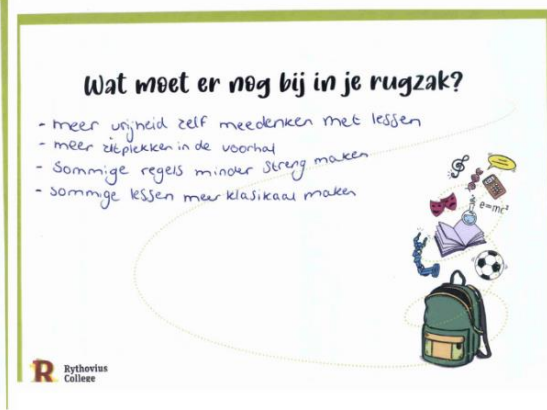 Wat moet er nog bij in je rugzak?
- meer vrijheid zelf meedenken met lessen
- meer zitplekken in de voorhal
- Sommige regels minder streng maken
- sommige lessen meer klasikaal maken
e=mc²
R Rythovius
College